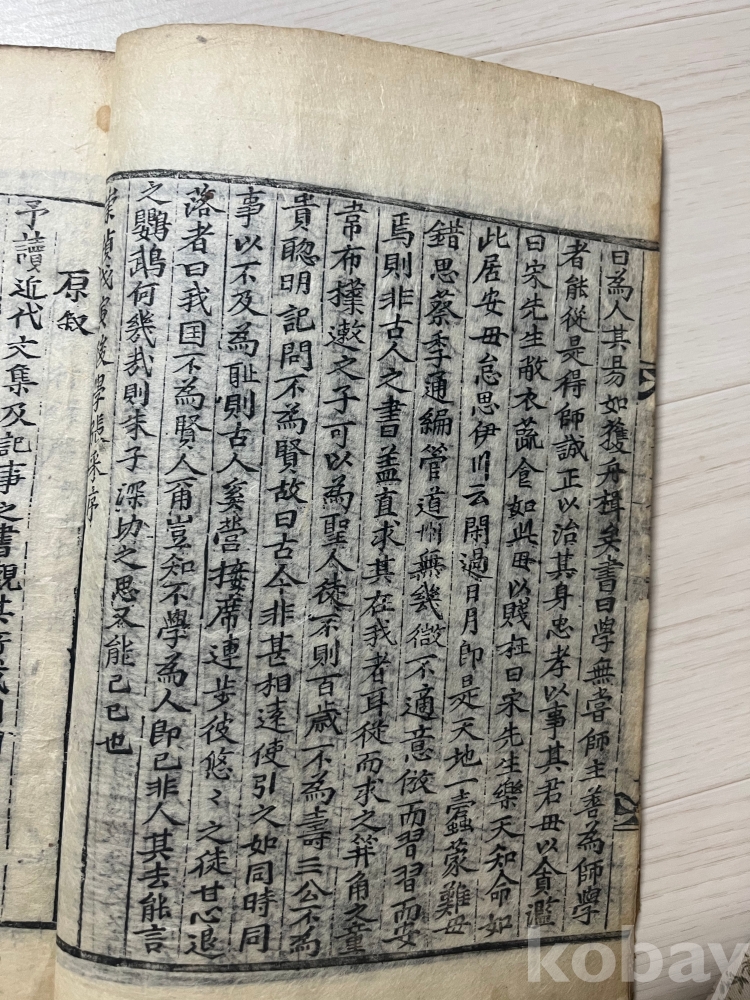 曰為人其易如獲舟楫矣書曰學無嘗師主善為師學
者能從是得師誠正以治其身忠孝以事其君毋以貪濫
曰宋先生敝衣蔬食如此毋以賤抂曰宋先生樂天知命如
此居安毋怠思伊川云閑過日月即是天地一蠹蒙難毋
錯思蔡季通編管道州無幾微不適意倣而習習而安
焉則非古人之書盖直求其在我者耳從而求之丱角之童
韋布樸遬之子可以為聖人徒不則百歲不為壽三公不為
貴聦明記問不為賢故曰古今非甚相遠使引之如同時同
事以不及為恥則古人奚啻接席連步彼悠〻之徒甘心退
落者曰我国不為賢人甭豈知不學為人即已非人其去能言
之鸚鵡何幾哉則朱子深切之思不能已已也
崇禎戊寅後學張采序
原叙
予讀近代文集及記事之書觀其
kobay